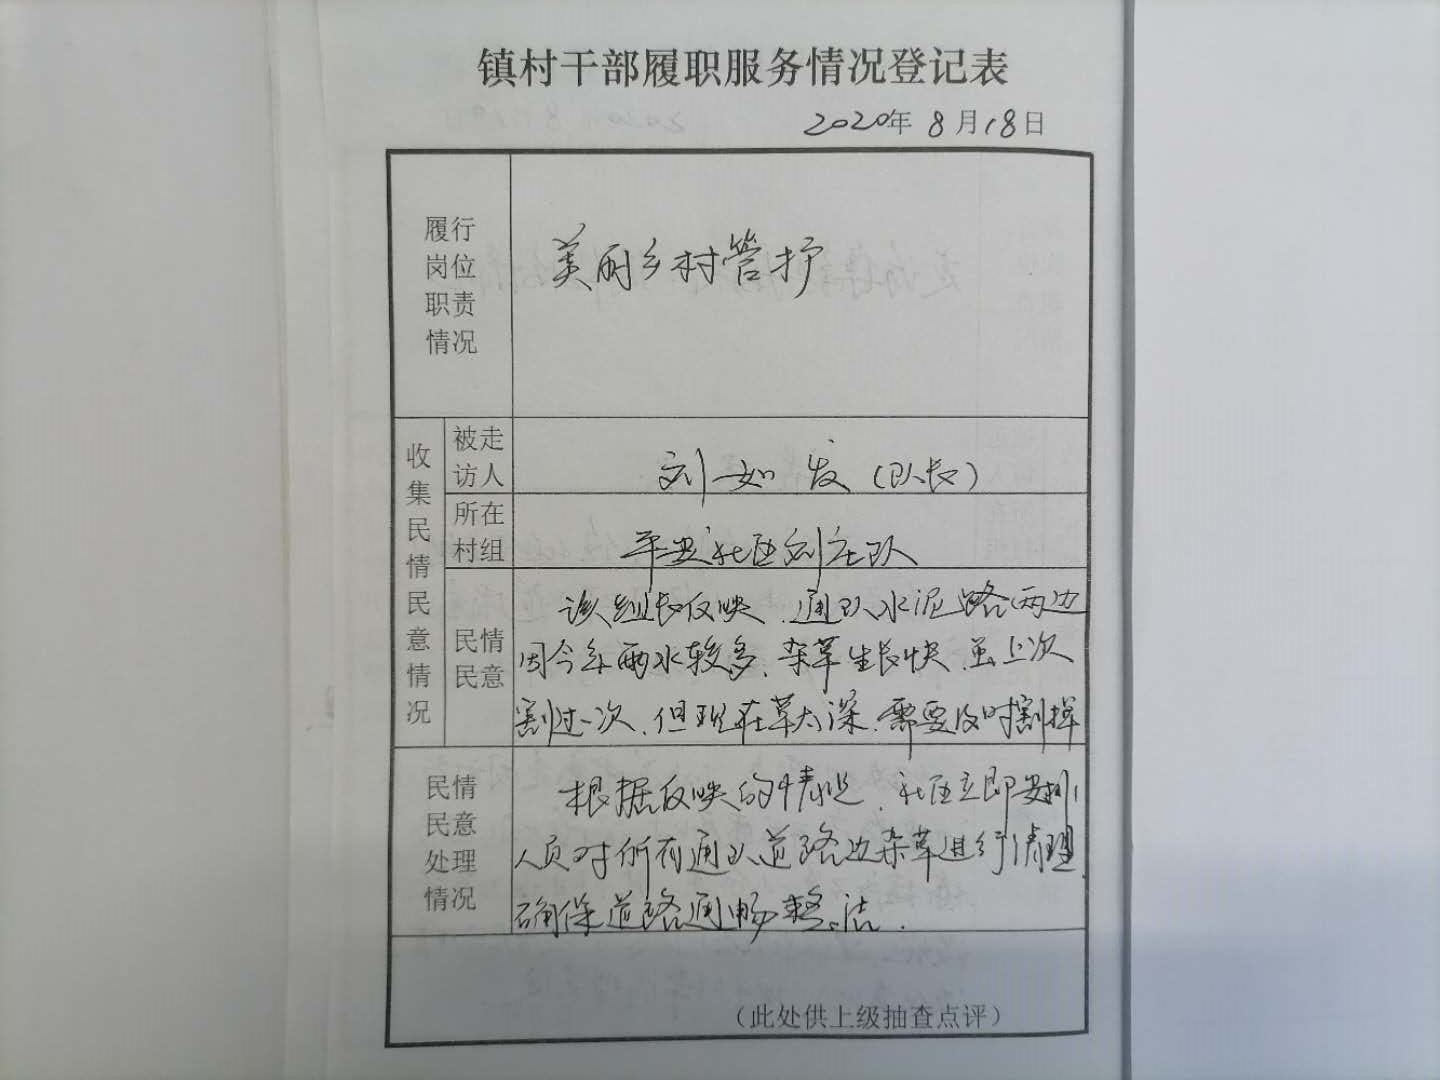 镇村干部履职服务情况登记表
2020年 8月18日
履行
岗位
职责
情况
美丽乡村管护
收集民情民意情况
被走
访人
刘如发（队长）
所在
村组
平安社区刘庄队
民情
民意
该组长反映、通队水泥路两边
因今年雨水较多、杂草生长快、虽上次
割过一次、但现在草太深、需要及时割掉
民情
民意
处理
情况
根据反映的情况、社区立即安排
人员对所有通队道路边杂草进行清理、
确保道路通畅整洁.
（此处供上级抽查点评）